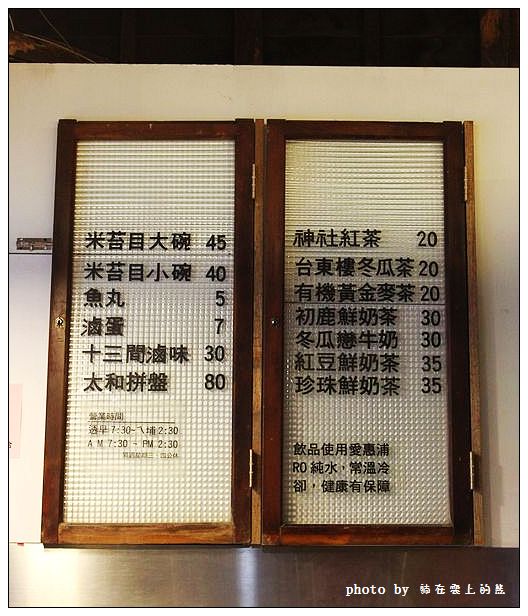 米苔目大碗 45
米苔目小碗 40
魚丸 5
滷蛋 7
十三間滷味 30
太和拼盤 80
營業時間
透早 7:30~ㄟ埔 2:30
AM 7:30 ~ PM 2:30
神社紅茶 20
台東樓冬瓜茶 20
有機黃金麥茶 20
初鹿鮮奶茶 30
冬瓜戀牛奶 30
紅豆鮮奶茶 35
珍珠鮮奶茶 35
飲品使用愛惠浦
RO 純水,常溫冷
卻,健康有保障
photo by 貓在雲上的熊